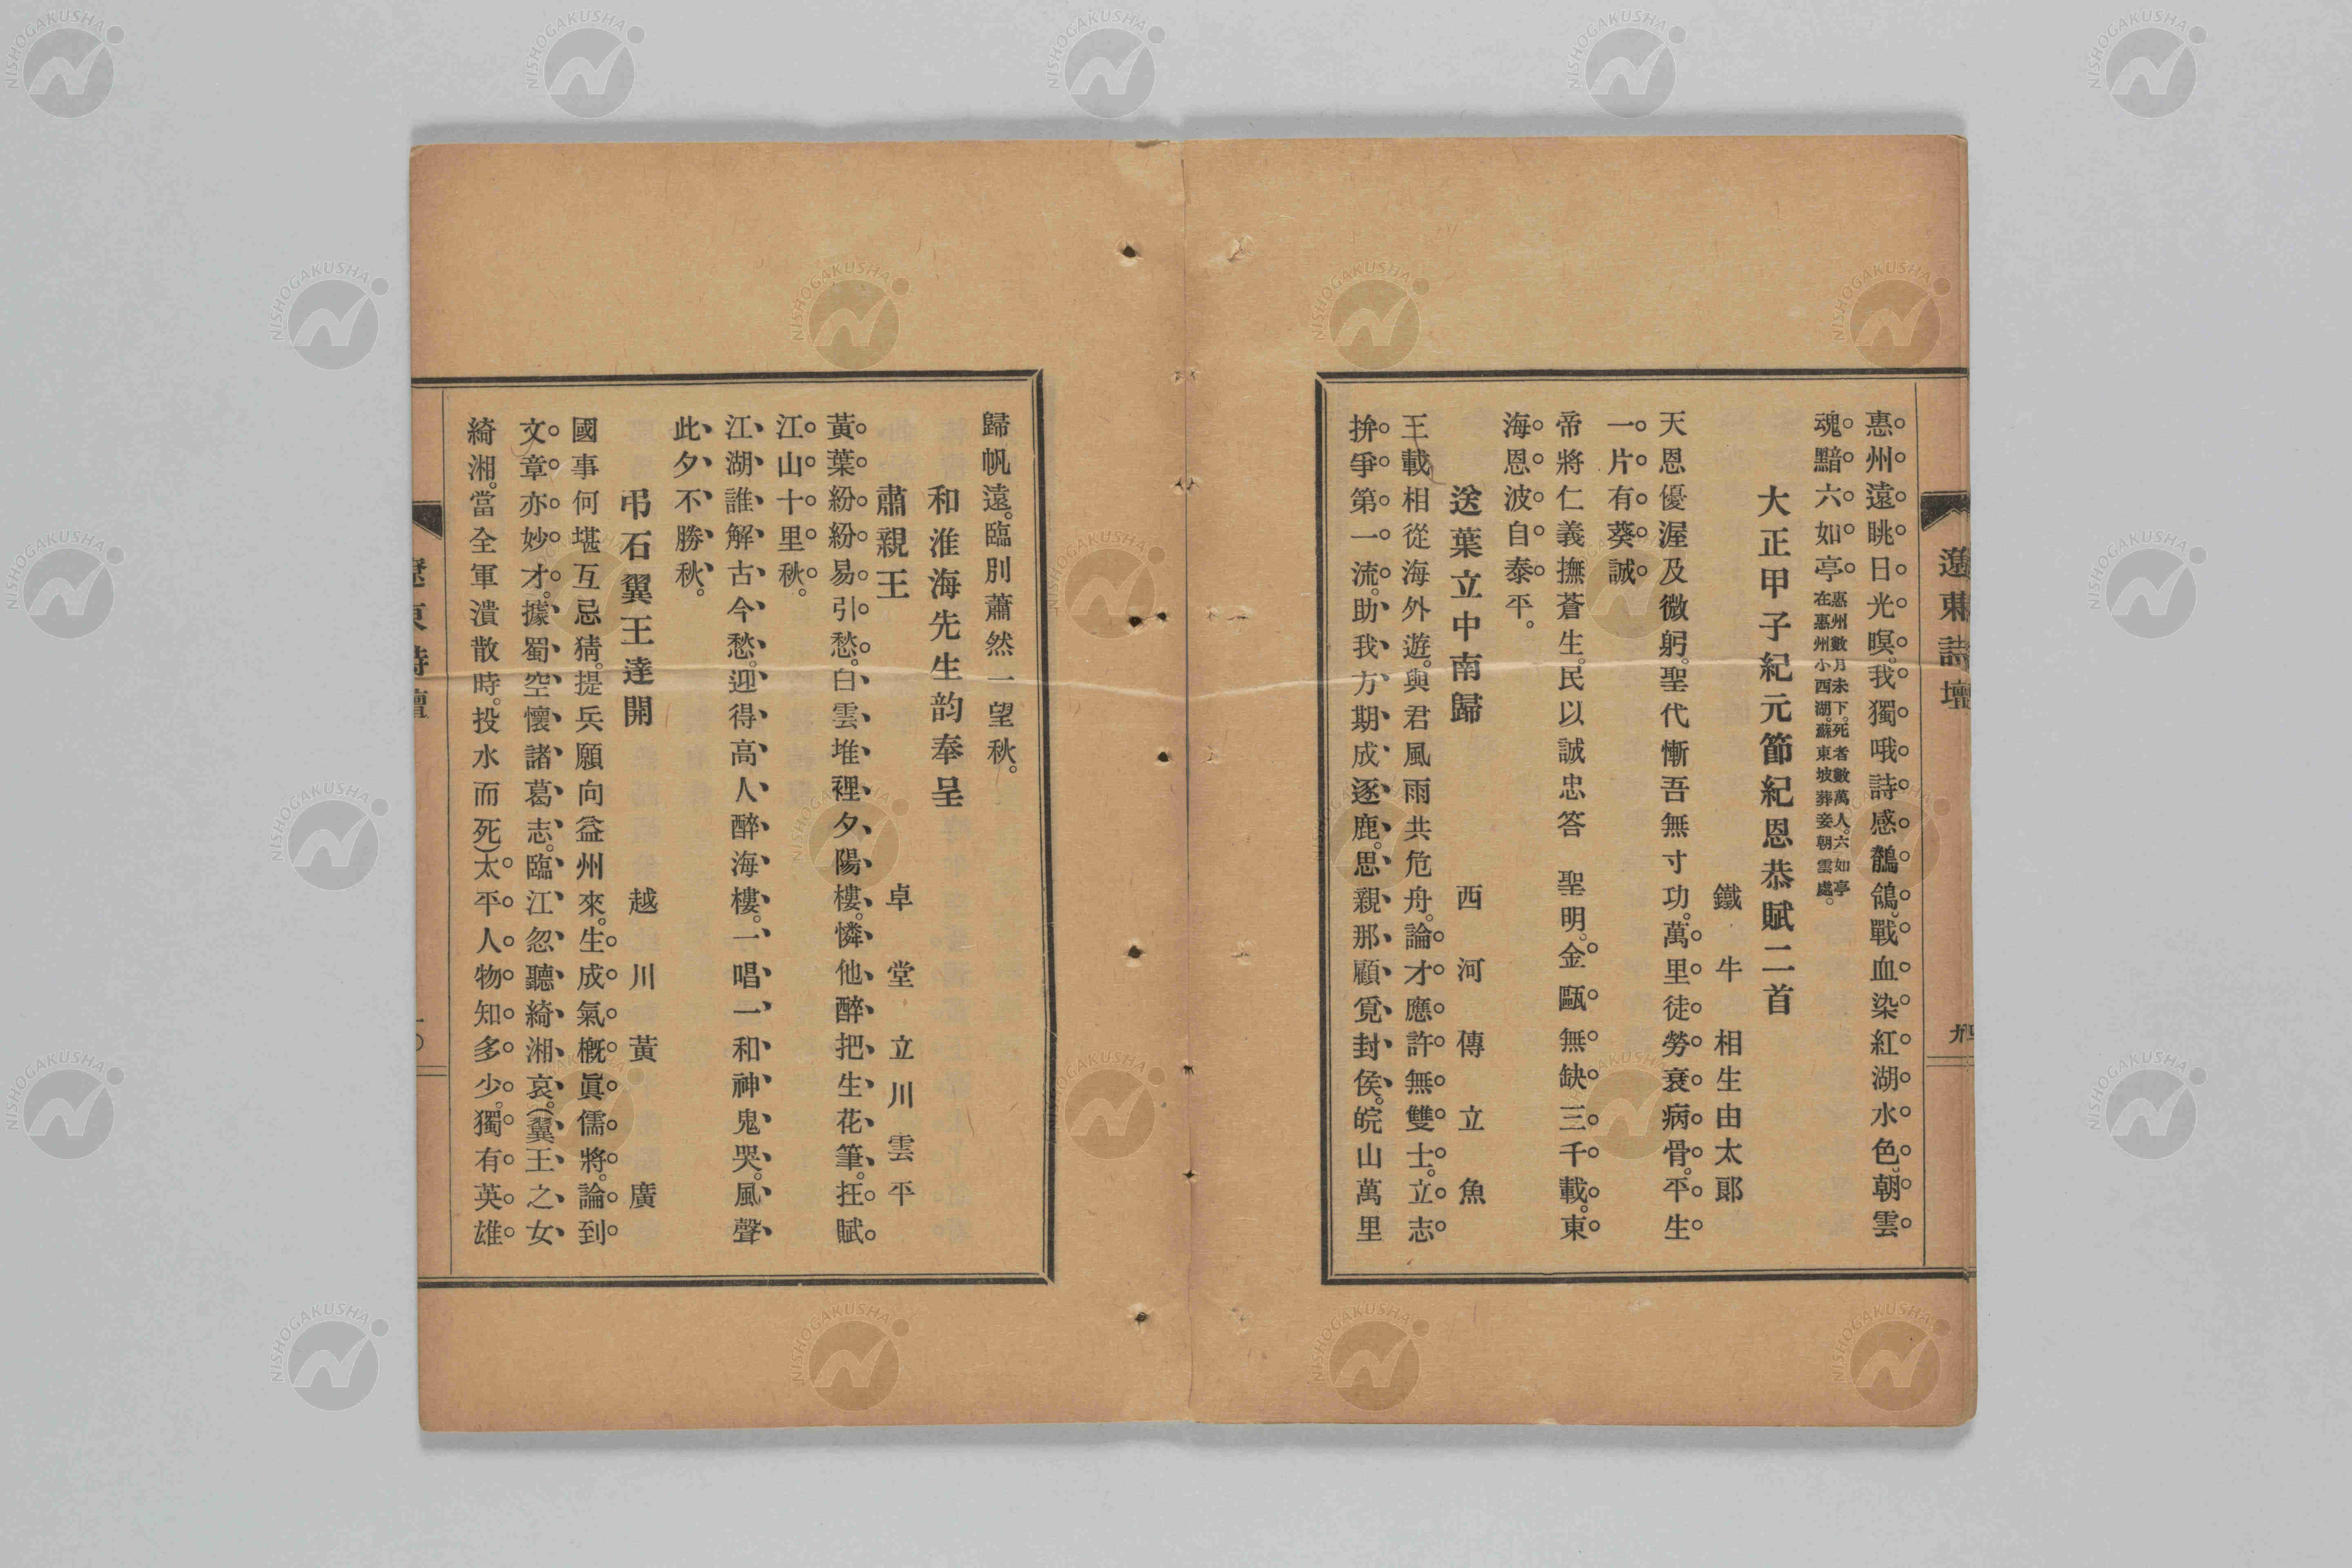 遼東詩壇
惠州遠眺日光暝。我獨哦詩感鶺鴒。戰血染紅湖水色。朝雲
魂黯六如亭。惠州數月未下。死者數萬人。六如亭
在惠州小西湖。蘇東坡葬妾朝雲處。
大正甲子紀元節紀恩恭賦二首
鐵牛 相生由太郞
天恩優渥及微躬。聖代慚吾無寸功。萬里徒勞衰病骨。平生
一片有葵誠。
帝將仁義撫蒼生。民以誠忠答 聖明。金甌無缺三千載。東
海恩波自泰平。
送葉立中南歸
西河 傳立魚
王載相從海外遊。與君風雨共危舟。論才應許無雙士。立志
拚爭第一流。助我方期成逐鹿。思親那顧覓封侯。皖山萬里
歸帆遠。臨別蕭然一望秋。
和淮海先生韵奉呈
肅親王
卓堂 立川雲平
黃葉紛紛易引愁。白雲堆裡夕陽樓。憐他醉把生花筆。抂賦
江山十里秋。
江湖誰解古今愁。迎得高人醉海樓。一唱一和神鬼哭。風聲
此夕不勝秋。
弔石翼王達開
越川 黃廣
國事何堪互忌猜。提兵願向益州來。生成氣槪眞儒將。論到
文章亦妙才。據蜀空懷諸葛志。臨江忽聽綺湘哀。(翼王之女
綺湘。當全軍潰散時。投水而死)太平人物知多少。獨有英雄
遼東詩壇
一〇
NISHOGAKUSHA